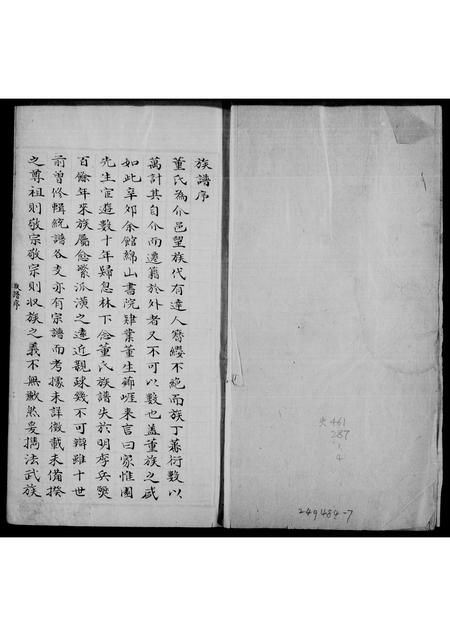 族譜序
董氏為介邑望族代有達人簪纓不絕而族丁蕃衍數以
萬計其自介而遷籍於外者又不可以數也蓋董族之盛
如此辛卯余館綿山書院肄業董生錦崕來言曰家惟園
先生宦遊數十年歸息林下念董氏族譜失於明季兵燹
百餘年來族屬愈繁派漢之遠近親疎幾不可辯雖十世
前曾修輯統譜各支亦有宗譜而考據未詳徵載未備揆
之尊祖則敬宗敬宗則収族之義不無歉然爰攜法武族
族譜序
461
287
4
249484-7